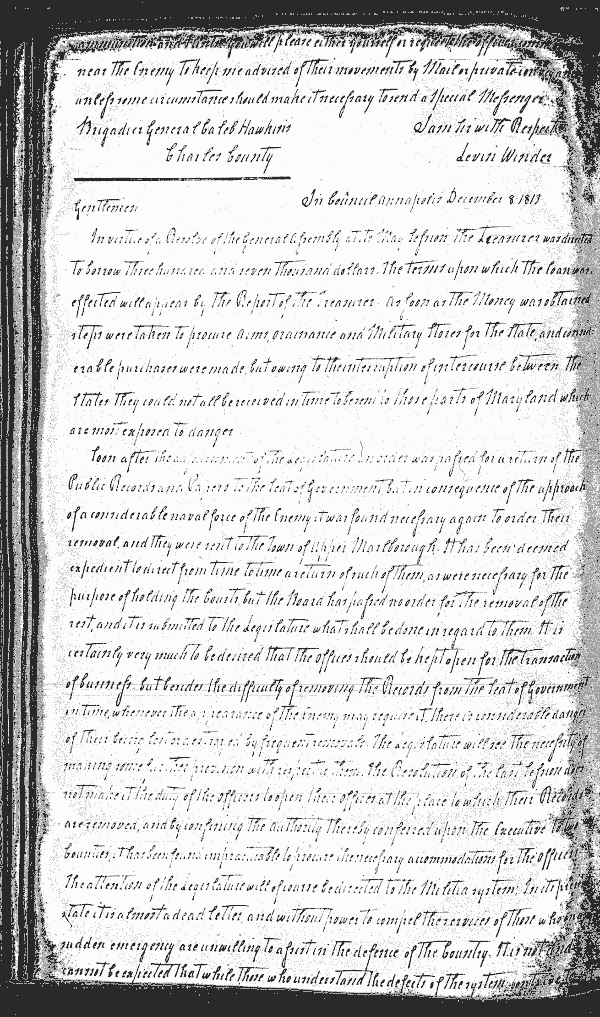 ammunition and Tents. You will please either yourself or request the officers
near the Enemy to keep me advised of their movements by Mail or private
unless some circumstance should make it necessary to send a Special Messenger.
Brigadier General Caleb Hawkins I am Sir with Respect
Charles County Levin Winder
In Council Annapolis December 8 1813
Gentlemen
In virtue of a Resolve of the General Assembly at its May Session the Treasurer was directed
to borrow three hundred and seven thousand dollars. The terms upon which the loan was
effected will appear by the Report of the Treasurer. As soon as the Money was obtained
steps were taken to procure Arms, Ordinance and Military Stores for the State, and consid-
erable purchases were made, but owing to the interruption of intercourse between the
States they could not all be received in time to be sent to those parts of Maryland which
are most exposed to danger
Soon after the of the Legislature an order was passed for a return of the
Public Records and Papers to the Seat of Government but in consequence of the approach
of a considerable naval force of the Enemy it was found necessary again to order their
removal, and they were sent to the Town of Upper Marlborough. It has been deemed
expedient to direct from time to time a return of such of them, as were necessary for the
purpose of holding the Courts but the Board has passed no order for the removal of the
rest, and it is submitted to the Legislature what shall be done in regard to them. It is
certainly very much to be desired that the offices should be kept open for the transaction
of business, but besides the difficulty of removing the Records from the Seat of Government
in time, whenever the appearance of the Enemy may require it, there is considerable danger
of their being lost or by frequent removals. The Legislature will see the necessity of
making some further provision with respect to them. The Resolution of the last Session does
not make it the duty of the officers to open their offices at the place to which their Records
are removed, and by confining the authority thereby conferred upon the Executive to
Counties, it has been found impracticable to procure the necessary accommodations for the officers
The attention of the Legislature will of course be directed to the Militia system. In its
state it is almost a dead letter, and without power to compel the services of those who
sudden emergency are unwilling to assist in the defence of the Country. It is not and
cannot be expected that while those who understand the defects of the system